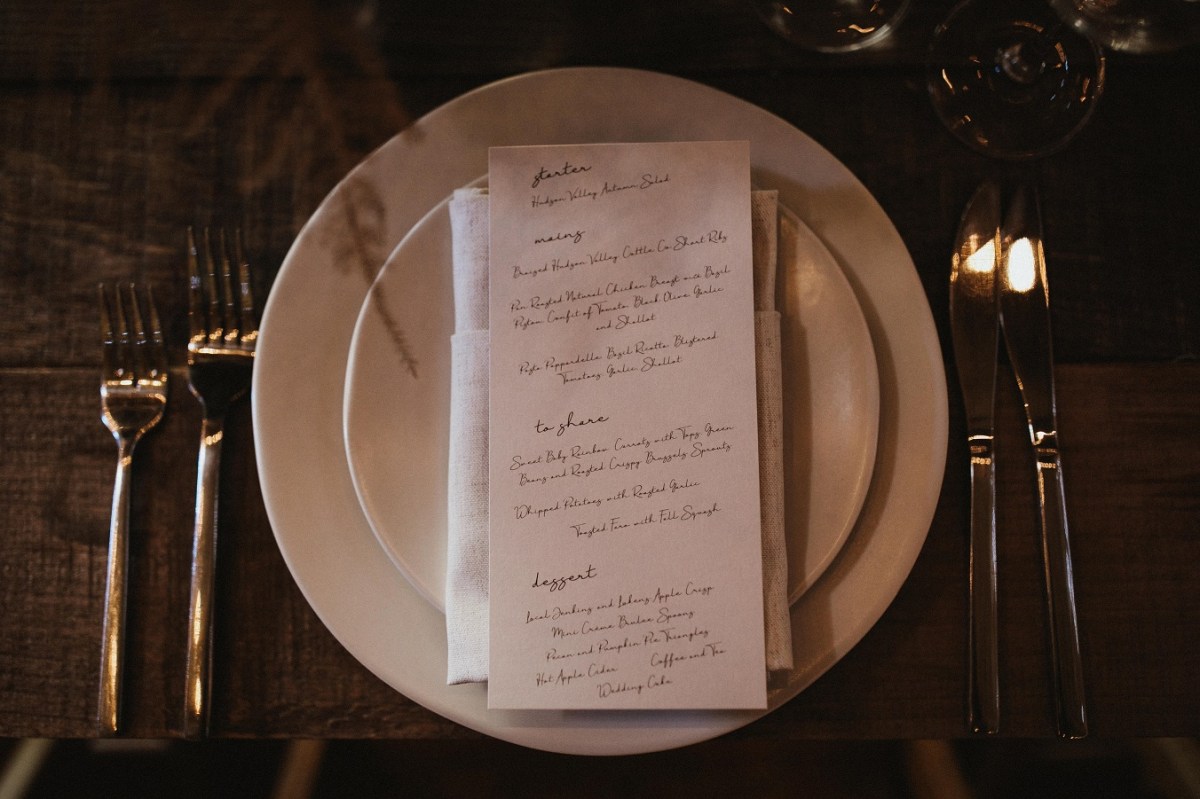 starter
Hudson Valley Autumn Salad
mains
Braised Hudson Valley Cattle Co. Short Ribs
Pan Roasted Natural Chicken Breast with Basil
Pistou Confit of Tomato Black Olive Garlic
and Shallot
Pasta Pappardelle Basil Ricotta Blistered
Tomatoes Garlic Shallot
to share
Sweet Baby Rainbow Carrots with Tops Green
Beans and Roasted Crispy Brussels Sprouts
Whipped Potatoes with Roasted Garlic
Toasted Faro with Fall Squash
dessert
Local Jenkins and Lukens Apple Crisp
Mini Crème Brulee Spoons
Pecan and Pumpkin Pie Triangles
Hot Apple Cider Coffee and Tea
Wedding Cake